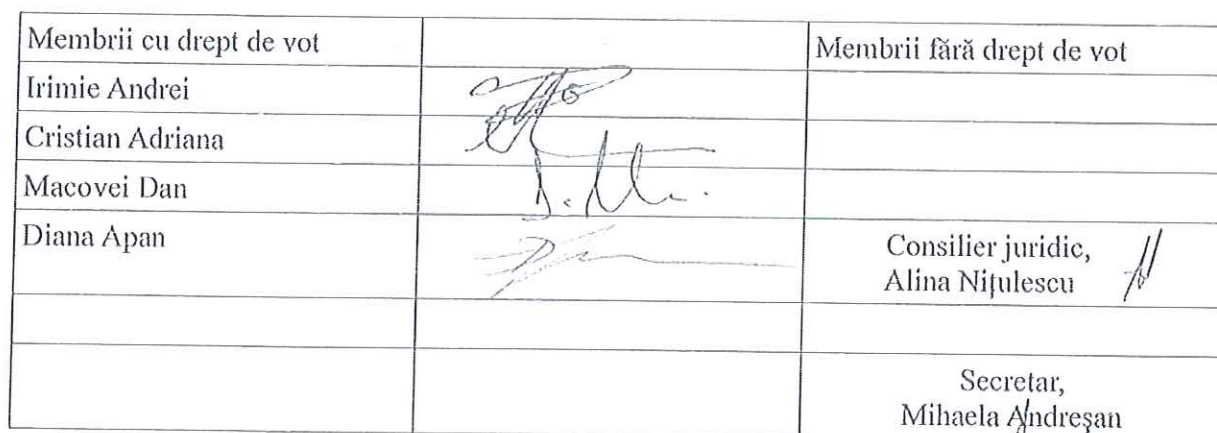 Membrii cu drept de vot
Membrii fără drept de vot
Irimie Andrei
Cristian Adriana
Macovei Dan
Diana Apan
Consilier juridic,
Alina Nițulescu
Secretar,
Mihaela Andreșan